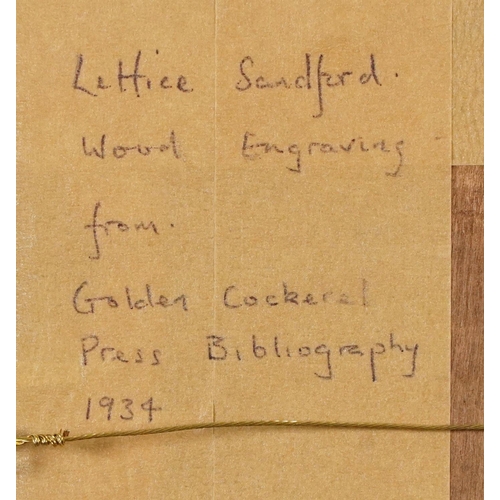 Lettice Sandford.
Wood Engraving
from.
Golden Cockerel
Press Bibliography
1934